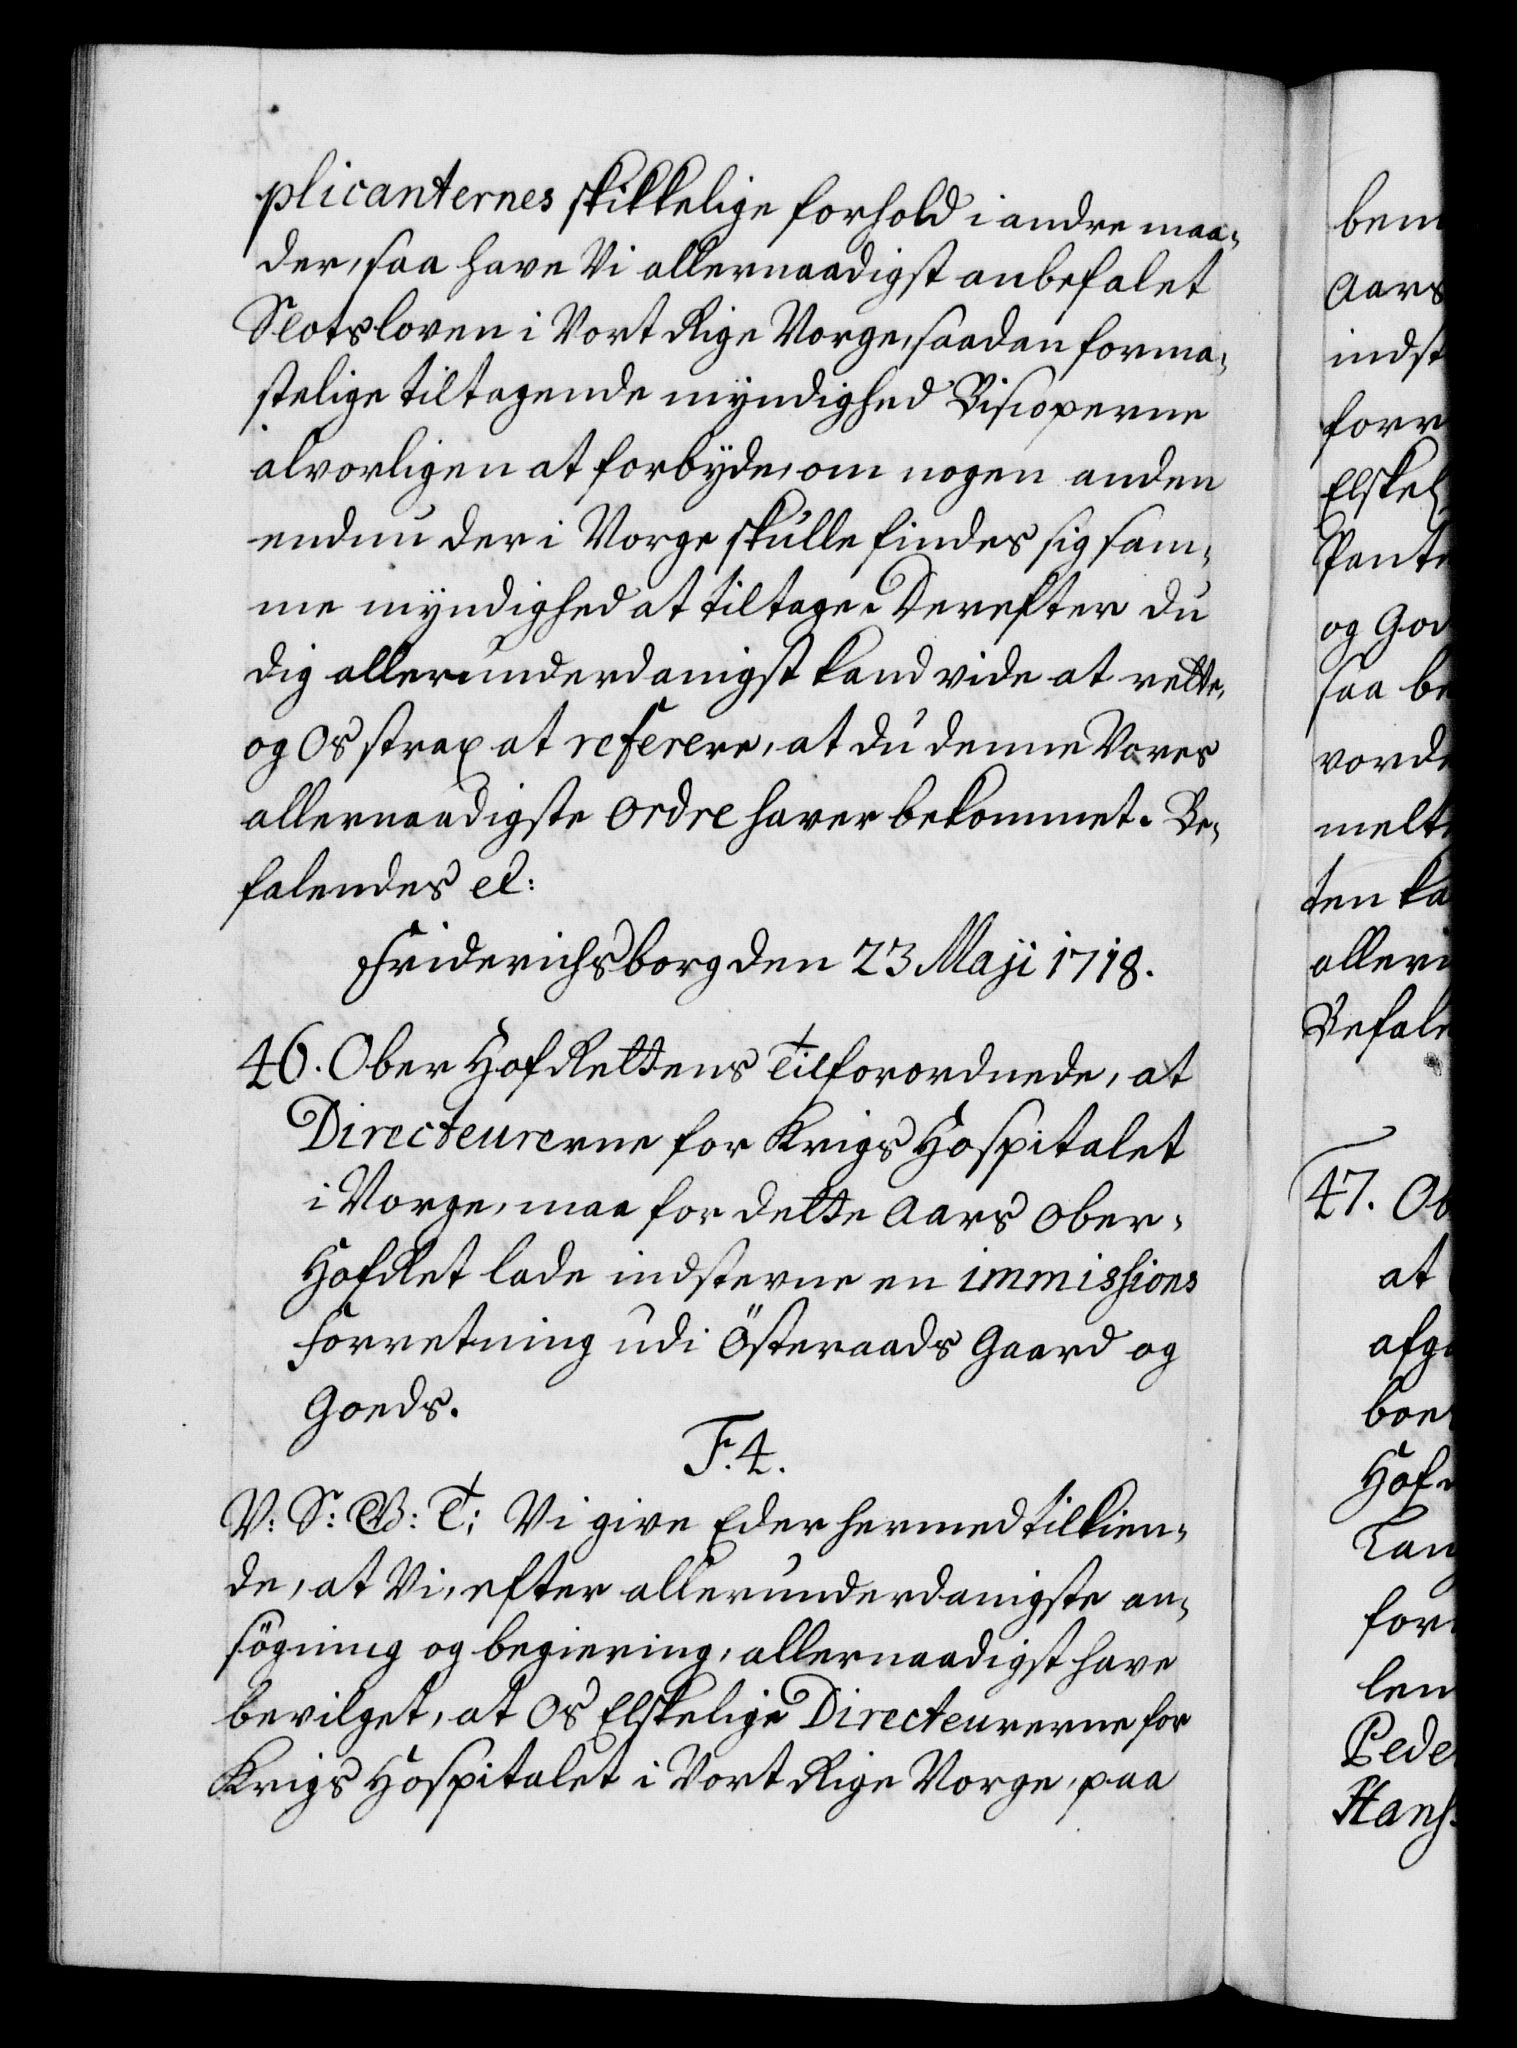 plicanternes skikkelige forhold i andre maa-
der, saa have Vi allernaadigst anbefalet
Slotsloven i Vort Rige Norge, saadan forma-
stelige tiltagende myndighed Bisoperne
alvorligen at forbyde, om nogen anden
endnu der i Norge skulle findes sig sam-
me myndighed at tiltage. Derefter du
dig allerunderdanigst kand vide at rette,
og Os strax at referere, at du denne Vores
allernaadigste Ordre haver bekommet. Be-
falendes etc:
Friderichsborg den 23 Maji 1718.
46. Ober HofRettens Tilforordnede, at
Directeurerne for Krigs Hospitalet
i Norge, maa for dette Aars Ober-
HofRet lade indstevne en immissions
Forretning udi Österaads Gaard og
Goeds.
F. 4.
V: S: G: T: Vi give Eder hermed tilkien-
de, at Vi, efter allerunderdanigste an-
søgning og begiering, allernaadigst have
bevilget, at Os Elskelige Directeurerne for
Krigs Hospitalet i Vort Rige Norge, paa
bem
Aars
indst
forr
Elskel
Pante
og God
saa be
vorde
melte
ten ka
alleru
Befale
47. Ob
at
afg
boe
Hof
Lau
for
len
Peder
Hans